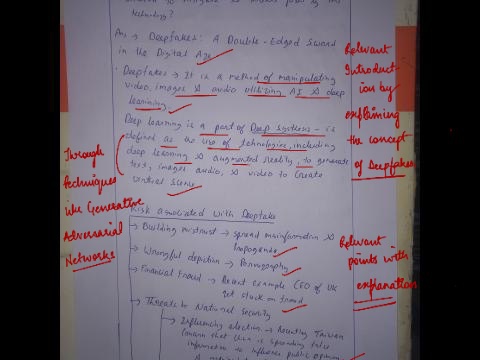 technology?
Ans → Deepfakes: A Double-Edged Sword
in the Digital Age
• Deepfakes → It is a method of manipulating
video, images & audio utilizing AI & deep
learning
Deep learning is a part of Deep synthesis - is
defined as the use of technologies, including
deep learning & augmented reality, to generate
text, images audio, & video to create
virtual scene
Risk associated with Deepfake
→ Building mistrust → spread misinformation &
Propaganda
→ Wrongful depiction → Pornography
→ Financial fraud → Recent example CEO of UK
get stuck on fraud
→ Threats to National Security
→ Influencing election → Recently Taiwan
claim that China is spreading false
information to influence public opinion
Relevant
Introduct-
ion by
explaining
the concept
of Deepfakes
Through
techniques
like Generative
Adversarial
Networks
Relevant
points with
explanation